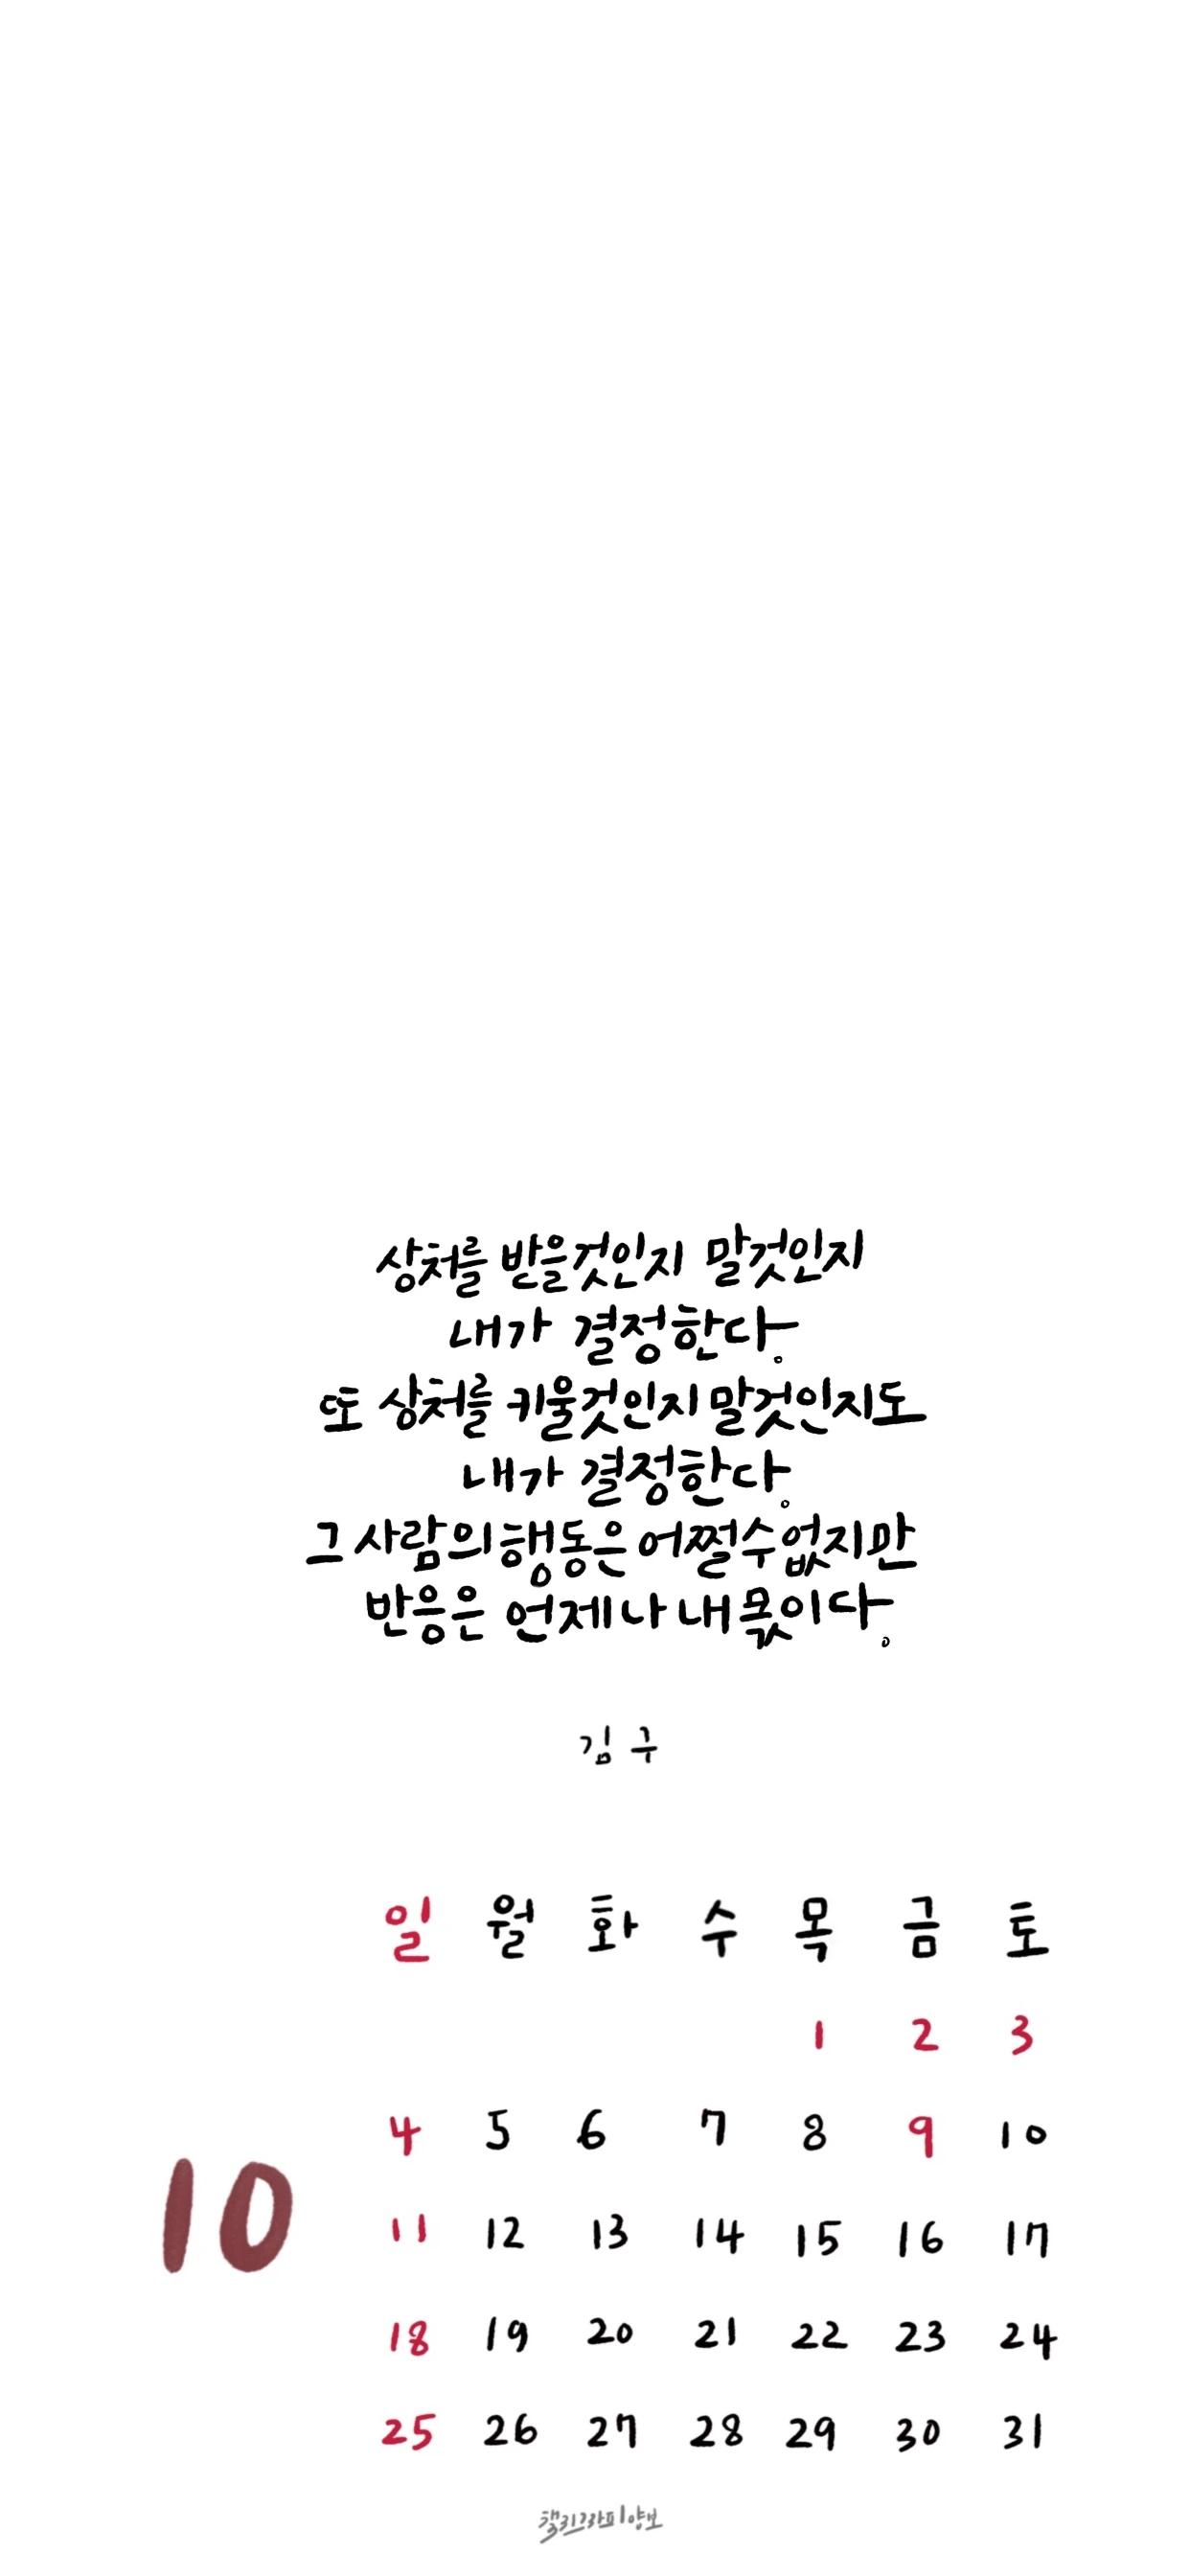 상처를 받을것인지 말것인지
내가 결정한다.
또 상처를 키울것인지 말것인지도
내가 결정한다.
그 사람의 행동은 어쩔수없지만
반응은 언제나 내 몫이다.
김 구
일 월 화 수 목 금 토
1 2 3
4 5 6 7 8 9 10
10
11 12 13 14 15 16 17
18 19 20 21 22 23 24
25 26 27 28 29 30 31
캘리그라피양보